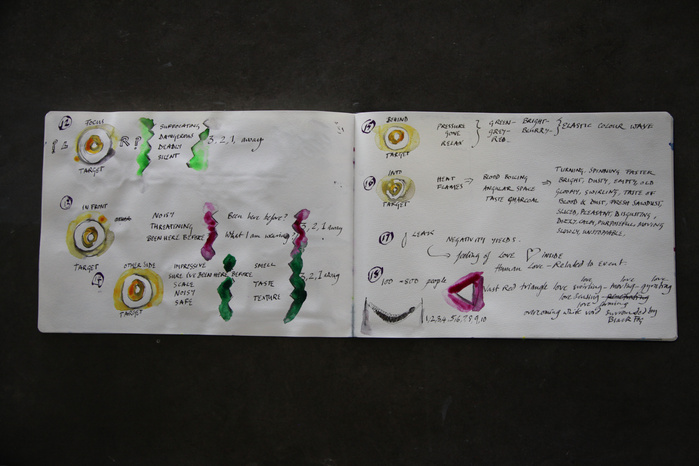 12
FOCUS
TARGET
SUFFOCATING
DANGEROUS
DEADLY
SILENT
3, 2, 1, away
13
IN FRONT
TARGET
NOISY
THREATENING
BEEN HERE BEFORE
Been here before?
What I am wearing?
3, 2, 1 away
OTHER SIDE
TARGET
IMPRESSIVE
SURE I'VE BEEN HERE BEFORE
SCALE
NOISY
SAFE
SMELL
TASTE
TEXTURE
3, 2, 1 away
15
BEHIND
TARGET
PRESSURE
GONE
RELAX
GREEN- BRIGHT-
GREY- BLURRY-
RED.
ELASTIC COLOUR WAVE
16
INTO
TARGET
HEAT
FLAMES
BLOOD BOILING
ANGULAR SPACE
TASTE CHARCOAL
TURNING, SPINNING FASTER
BRIGHT, DUSTY, EMPTY, OLD
GLOOMY, SWIRLING, TASTE OF
BLOOD & DUST, FRESH SAWDUST,
SLICED, PLEASANT, DISGUSTING,
DIZZY, CALM, PURPOSEFUL, MOVING
SLOWLY, UNSTOPPABLE.
17
LEAVE
NEGATIVITY YIELDS.
feeling of LOVE INSIDE
Human Love - Related to Event
18
100-500 people
1,2,3,4,5,6,7,8,9,10
Vast Red triangle love swirling- moving- gyrating
love love love
love sucking
love
overcoming dark void surrounded by
BLACK FOG